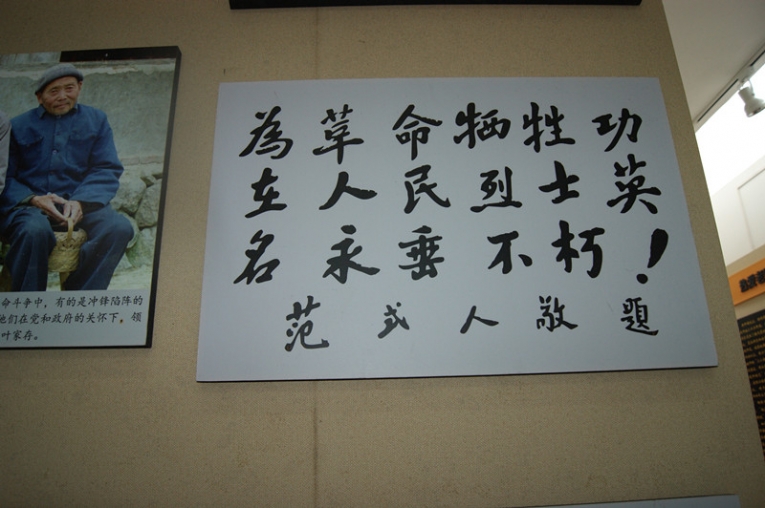 為革命牺牲功
在人民烈士英
名永垂不朽！
范式人敬題
命斗争中，有的是冲锋陷阵的
他们在党和政府的关怀下，领
叶家存。